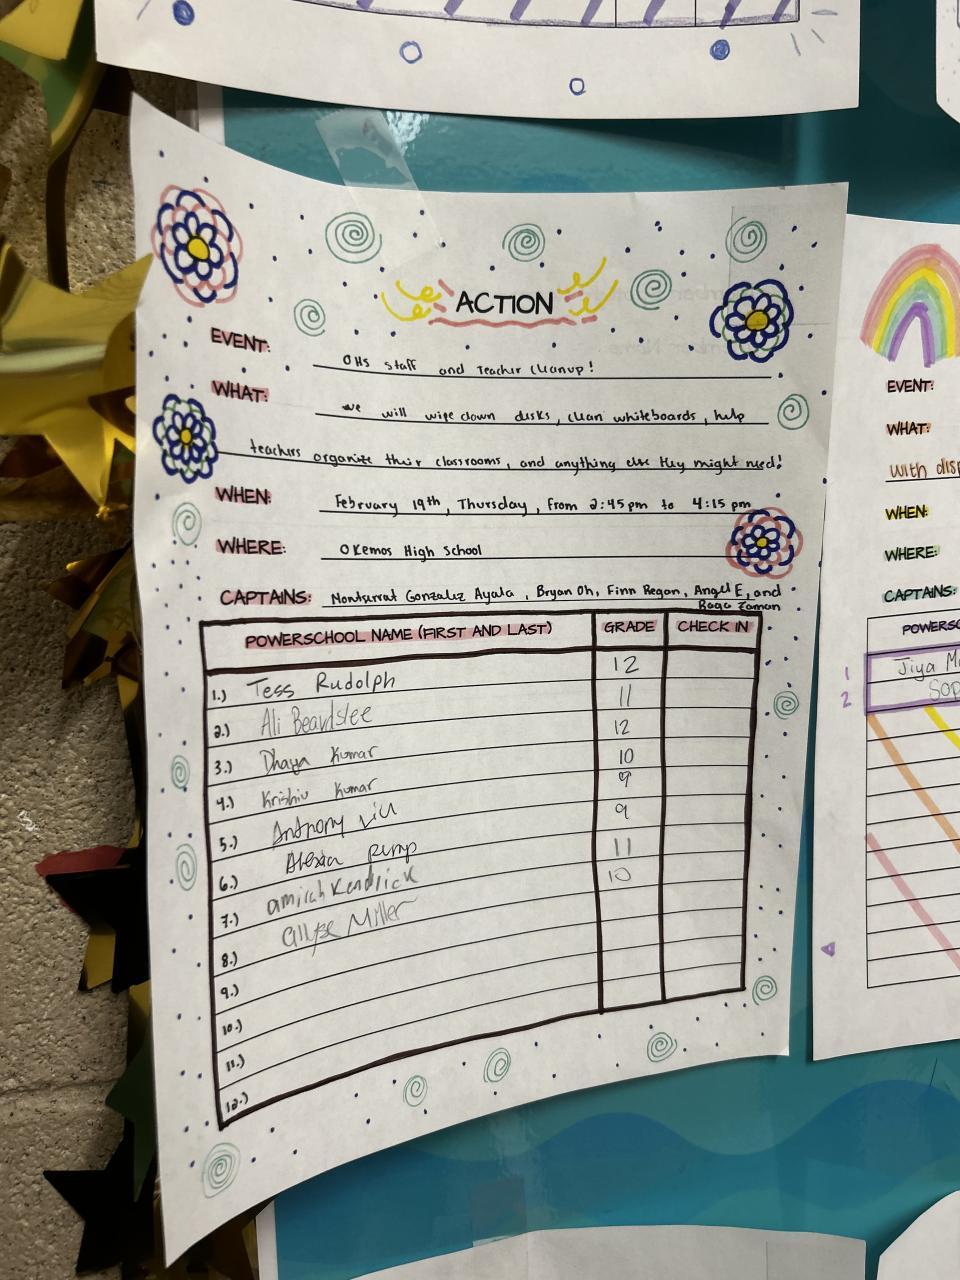 ACTION
EVENT: OHS staff and Teacher cleanup!
WHAT: we will wipe down disks, clean whiteboards, help
teachers organize their classrooms, and anything else they might need!
WHEN: February 19th, Thursday, from 2:45pm to 4:15 pm
WHERE: Okemos High School
CAPTAINS: Montserrat Gonzalez Ayala, Bryan Oh, Finn Regan, Angel E, and
Zaman
POWERSCHOOL NAME (FIRST AND LAST) GRADE CHECK IN
1.) Tess Rudolph 12
2.) Ali Beardslee 11
3.) Dhaya Kumar 12
4.) Krishiv Kumar 10
5.) Anthony Liu 9
6.) Alexia 9
7.) amirah Kendrick 11
8.) Miller 10
9.)
10.)
11.)
12.)
EVENT:
WHAT:
with
WHEN:
WHERE:
CAPTAINS:
1 Jiya
2